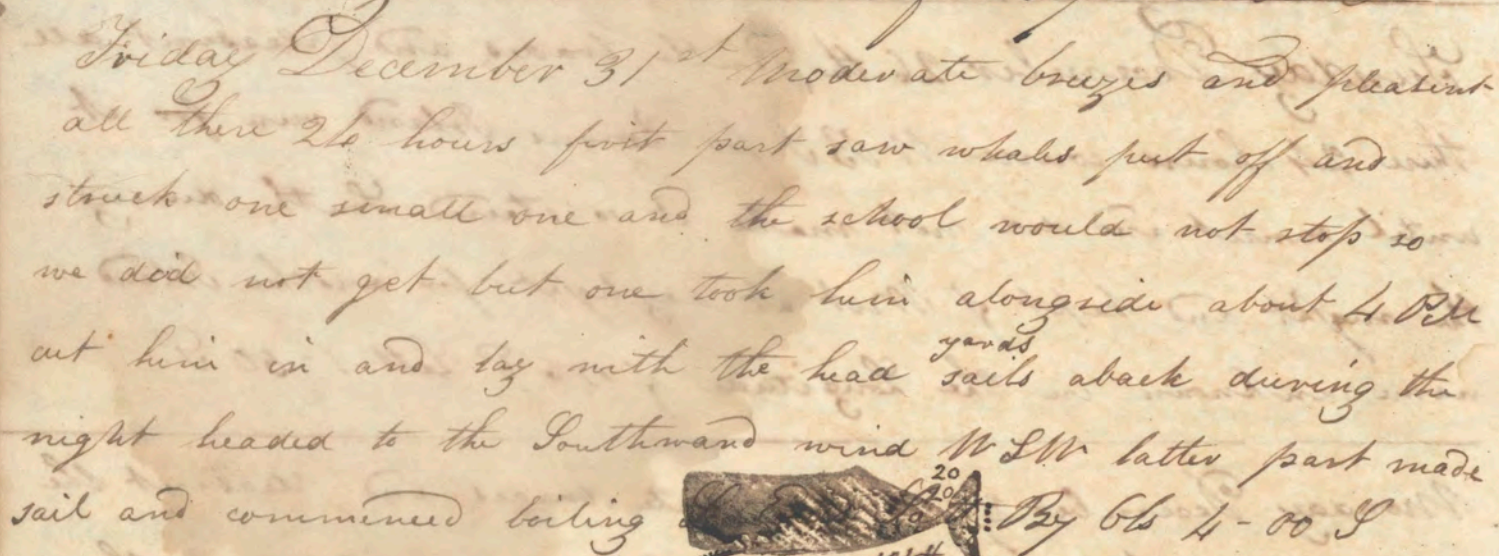 Friday December 31st Moderate breezes and pleasint
all there 24 hours first part saw whales put off and
struck one small one and the school would not stop so
we did not get but one took him alongside about 4 PM
cut him in and lay with the head sails aback during the
yards
night headed to the Southward wind WSW latter part made
sail and commenced boiling
20
20
By Obs 4-00 S